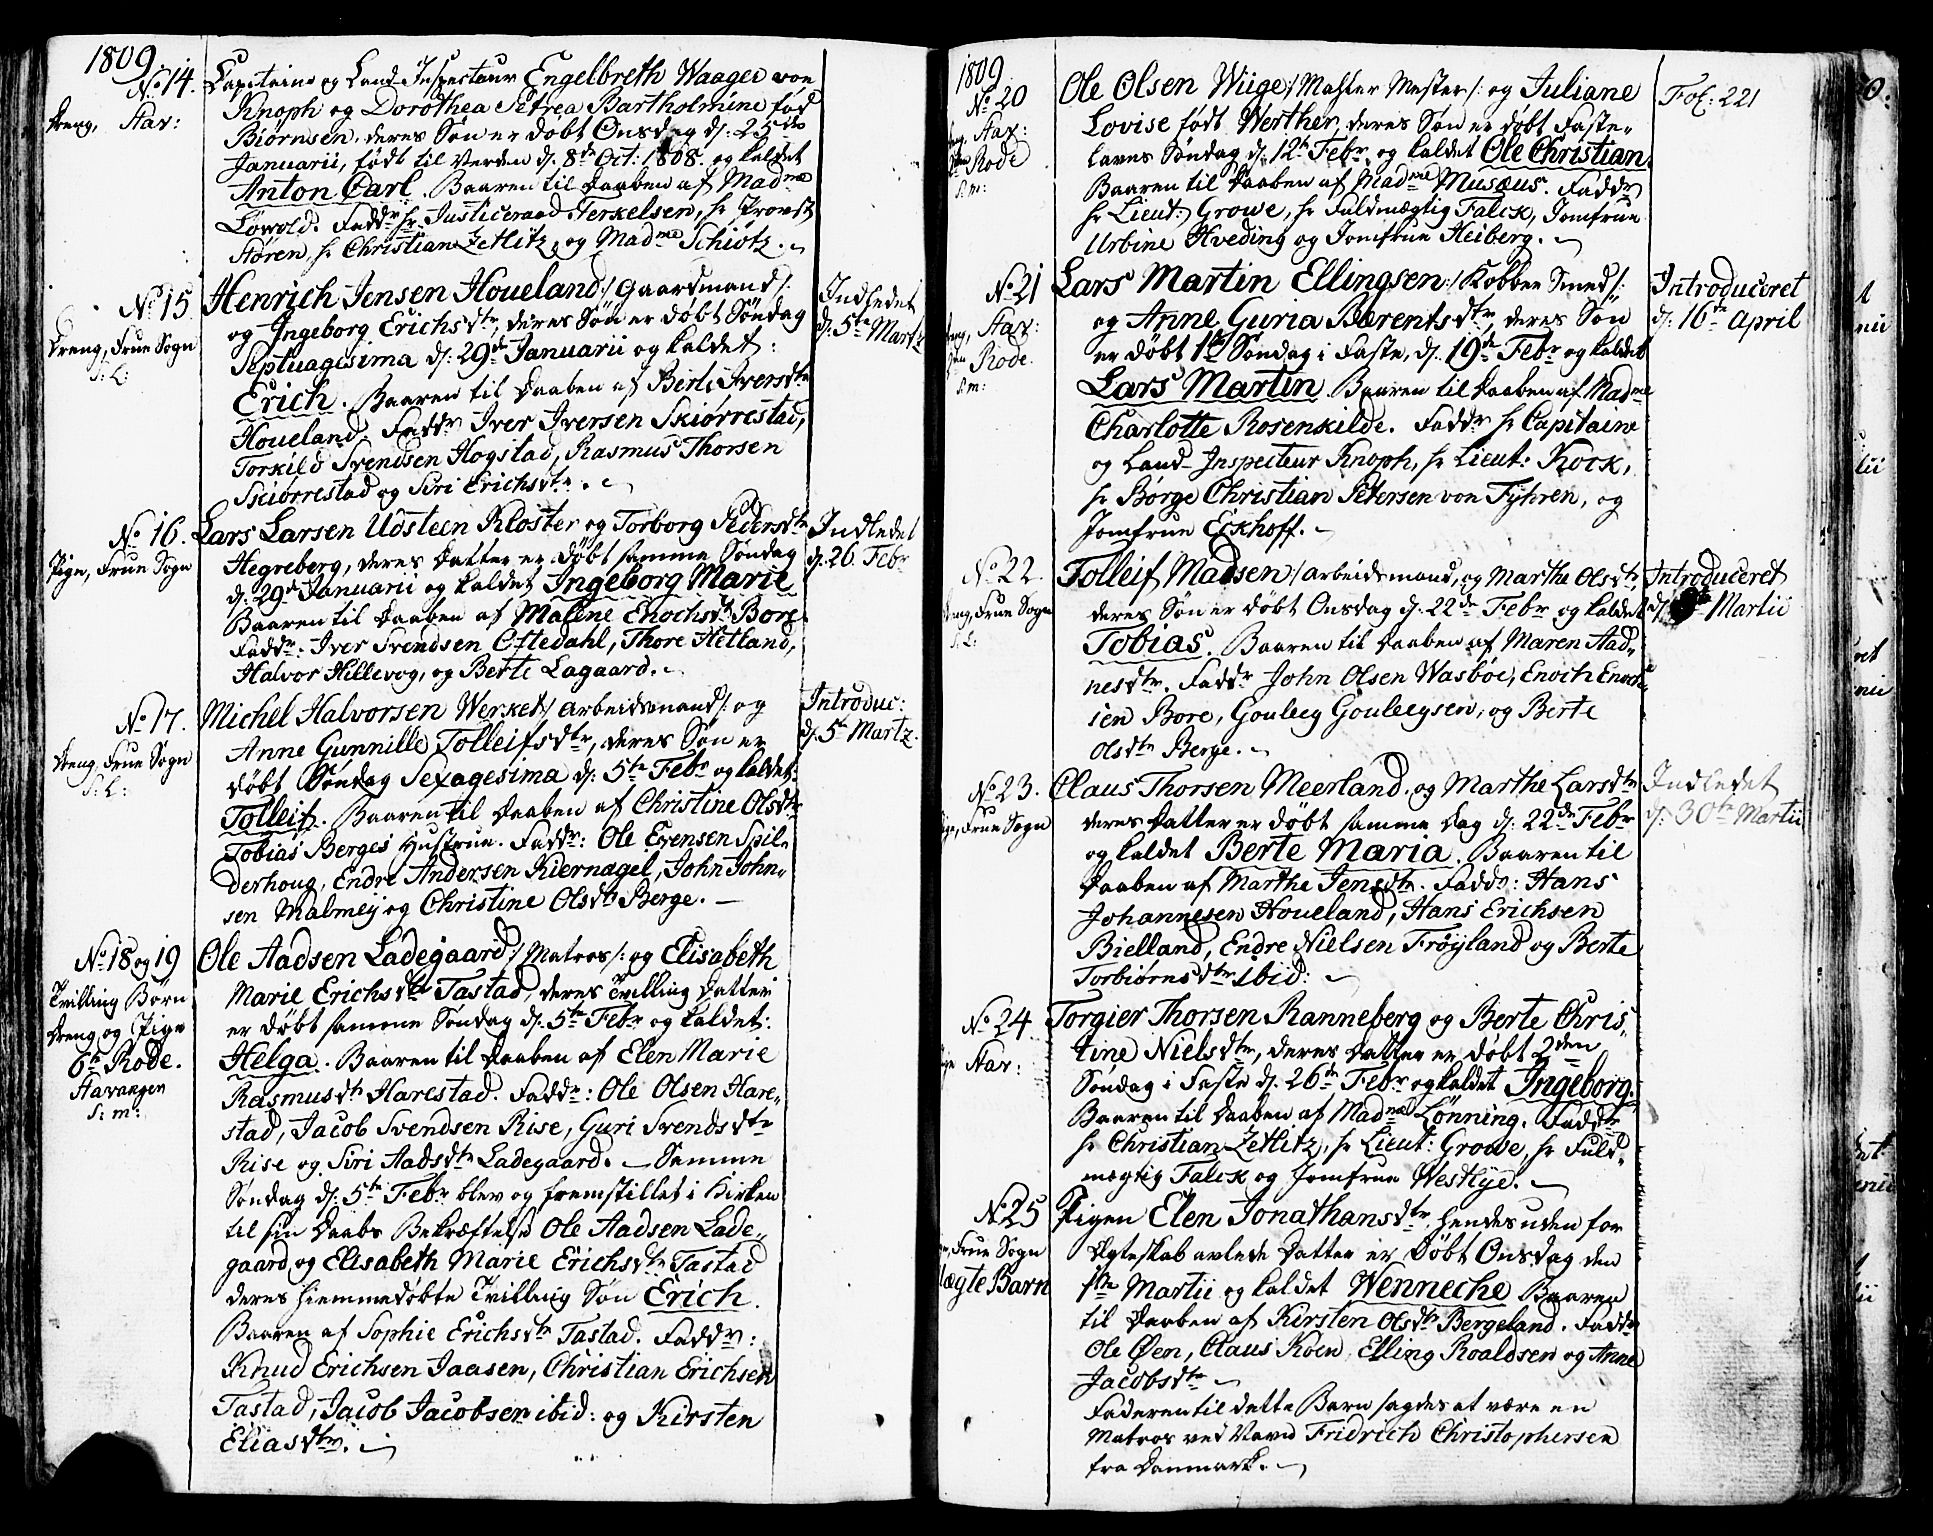 1809.
No 14.
Dreng, Stav:
Capitaine og Land-Inspecteur Engelbreth Waager von
Knoph og Dorothea Petrea Bartholmine fød
Biørnsen, deres Søn er døbt Onsdag d: 25de
Januarii, født til Verden d. 8de Oct: 1808. og kaldet
Anton Carl. Baaren til Daaben af Madme
Løwold. Faddr hr Justiceraad Terkelsen, hr Provst
Støren, hr Christian Zetlitz, og Madme Schiøtz.
No 15
Dreng, Frue Sogn
S: L:
Henrich Jensen Houeland /: Gaardmand :/
og Ingeborg Erichsdtr, deres Søn er døbt Søndag
Septuagesima d: 29de Januarii og kaldet:
Erich. Baaren til Daaben af Berti Iversdtr
Houeland, Faddr Iver Iversen Skiørrestad,
Torkild Svendsen Hogstad, Rasmus Thorsen
Skiørrestad og Siri Erichsdtr.
Indledet
d: 5te Martz
No 16.
Pige, Frue Sogn
Lars Larsen Udsteen Kloster og Torborg Pedersdtr
Hegreberg, deres Datter er døbt samme Søndag
d: 29de Januarii og kaldet Ingeborg Marie
Baaren til Daaben af Malene Enochsdtr Bore
Faddr: Iver Svendsen Eftedahl, Thore Hetland,
Halvor Hillevog, og Berte Lagaard.
Indledet
d: 26. Febr
No 17.
Dreng, Frue Sogn
S: L:
Michel Halvorsen Werket /: Arbeidsmand :/ og
Anne Gunnille Tolleifsdtr, deres Søn er
døbt Søndag Sexagesima d: 5te Febr og kaldet:
Tolleif. Baaren til Daaben af Christine Olsdtr
Tobias Berges Hustrue. Faddr: Ole Evensen Spil-
derhoug, Endre Andersen Kiernagel, John John-
sen Malmey og Christine Olsdtr Berge.
Introduc:
d: 5te Martz.
No 18 og 19
Tvilling Børn
Dreng og Pige
6te Rode.
Stavanger
S: m:
Ole Aadsen Ladegaard /: Matros :/ og Elisabeth
Marie Erichsdtr Tastad, deres Tvilling Datter
er døbt samme Søndag d: 5te Febr og kaldet:
Helga. Baaren til Daaben af Elen Marie
Rasmusdtr Harestad. Faddr: Ole Olsen Hare-
stad, Jacob Svendsen Rise, Guri Svendsdtr
Rise og Siri Aadsdtr Ladegaard. — Samme
Søndag d: 5te Febr blev og fremstillet i Kirken
til sin Daabs Bekræftelse Ole Aadsen Lade-
gaard og Elisabeth Marie Erichsdtr Tastad
deres hiemmedøbte Tvilling Søn Erich.
Baaren af Sophie Erichsdtr Tastad. Faddr:
Knud Erichsen Jaasen, Christian Erichsen
Tastad, Jacob Jacobsen ibid: og Kirsten
Eliasdtr.
1809
No 20
Stav:
Rode
S: m:
Ole Olsen Wiige /: Mahler Mester :/ og Juliane
Lovise født Werther, deres Søn er døbt Faste-
lavns Søndag d: 12te Febr, og kaldet Ole Christian
Baaren til Daaben af Madme Musæus. Faddr
hr Lieut: Growe, hr Fuldmægtig Falck, Jomfrue
Urbine Hveding og Jomfrue Heiberg.
Fol: 221
No 21
Stav:
Rode
S: m:
Lars Martin Ellingsen /: Kobber Smed :/
og Anne Guria Bærentsdtr, deres Søn
er døbt 1ste Søndag i Faste, d: 19de Febr og kaldet
Lars Martin. Baaren til Daaben af Madme
Charlotte Rosenkilde. Faddr hr Capitaine
og Land-Inspecteur Knoph, hr Lieut: Kock,
hr Børge Christian Petersen von Fyhren, og
Jomfrue Eckhoff.
Introduceret
d: 16de April
No 22.
Dreng, Frue Sogn
S: L:
Tolleif Madsen /: Arbeidsmand, og Marthe Olsdtr,
deres Søn er døbt Onsdag d: 22de Febr og kaldet
Tobias. Baaren til Daaben af Maren Aad-
nesdtr. Faddr John Olsen Wasbøe, Enoch Enoch-
sen Bore, Gouleeg Gouleegsen, og Berte
Olsdtr Berge.
Introduceret
d: Martii
No 23.
Pige, Frue Sogn
Claus Thorsen Meerland, og Marthe Larsdtr
deres Datter er døbt samme Dag d: 22de Febr
og kaldet Berte Maria. Baaren til
Daaben af Marthe Jensdtr. Faddr: Hans
Johannesen Houeland, Hans Erichsen
Bielland, Endre Nielsen Frøyland og Berte
Torbiørnsdtr Ibid:
Indledet
d: 30te Martii
No 24
Stav:
Torgier Thorsen Ranneberg og Berte Chris-
tine Nielsdtr, deres Datter er døbt 2den
Søndag i Faste d: 26de Febr og kaldet Ingeborg.
Baaren til Daaben af Madme Lønning. Faddr
hr Christian Zetlitz, hr Lieut: Growe, hr Fuld-
mægtig Falck og Jomfrue Westlye.
No 25
Frue Sogn
ægte Barn
Pigen Elen Jonathansdtr, hendes uden for
Ægteskab avlede Datter er døbt Onsdag den
1ste Martii og kaldet Wenneche Baaren
til Daaben af Kirsten Olsdtr Bergeland. Faddr
Ole Øen, Claus Koen, Elling Roaldsen og Anne
Jacobsdtr
Faderen til dette Barn sagdes at være en
Matros ved Navn Fridrich Christophersen
fra Danmark.